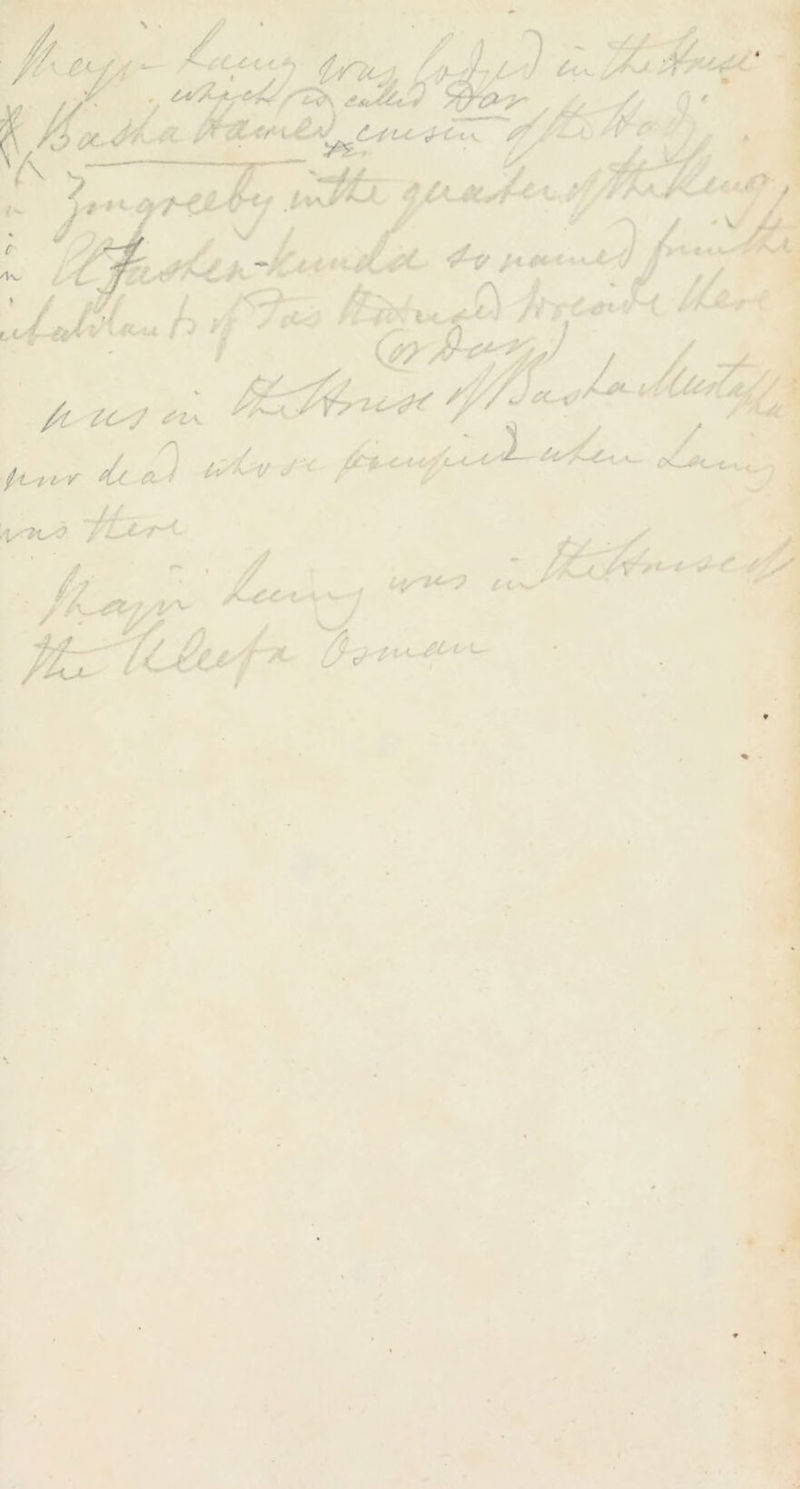 Major Laing was lodged in the House
which is called Dar
Basha Hamed, cousin of the Hadj
Zingreeby in the quarter of the King,
so named from the
inhabitants of Fas that used to reside there
(or Dar)
was in the House of Basha Mustapha
now dead who so occupied when Laing
was there
Major Laing was in the House of
the Kleefa Osman